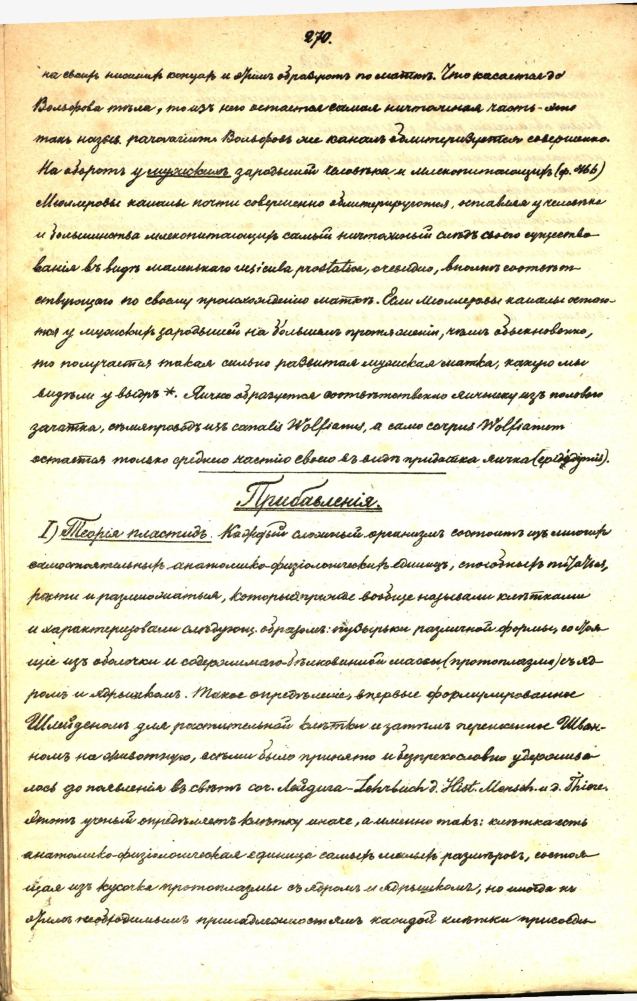 270.
на своихъ нижнихъ концахъ и этимъ образуютъ по маткѣ. Что касается до
Вольфова тѣла, то изъ него остается самая ничтожная часть – это
такъ назыв. parovarium. Вольфовъ же каналъ облитерируется совершенно.
На оборотъ у мужскихъ зародышей человѣка и млекопитающихъ (ф. 466)
Мюллеровы каналы почти совершенно облитерируются, оставляя у человѣка
и большинства млекопитающихъ самый ничтожный слѣдъ своего существо
ванія въ видѣ маленькаго vesicula prostatica, очевидно, вполнѣ соотвѣт
ствующаго по своему происхожденію маткѣ. Если Мюллеровы каналы остаю
тся у мужскихъ зародышей на большемъ протяженіи, чѣмъ обыкновенно,
то получается такая сильно развитая мужская матка, какую мы
видѣли у выдръ *. Яичко образуется соотвѣтственно яичнику изъ половаго
зачатка, сѣмяпроводъ изъ canalis Wolfianus, а само corpus Wolfianum
остается только среднею частію своею въ видѣ придатка яичка (epididymis).
Прибавленія.
I) Теорія пластидъ. Каждый сложный организмъ состоитъ изъ многихъ
самостоятельныхъ анатомико-физіологическихъ единицъ, способныхъ питаться,
рости и размножаться, которыя прежде вообще называли клѣтками
и характеризовали слѣдующ. образомъ: пузырьки различной формы, состоя
щіе изъ оболочки и содержимаго – бѣлковинной массы (протоплазмы) съ яд
ромъ и ядрышкомъ. Такое опредѣленіе, впервые формулированное
Шлейденомъ для растительной клѣтки и затѣмъ перенесенное Шван-
номъ на животную, всѣми было принято и безпрекословно удержива
лось до появленія въ свѣтъ соч. Лейдига – Lehrbuch d. Hist. Mensch. u. d. Thiere.
Этотъ ученый опредѣляетъ клѣтку иначе, а именно такъ: клѣтка есть
анатомико-физіологическая единица самыхъ малыхъ размѣровъ, состоя
щая изъ кусочка протоплазмы съ ядромъ и ядрышкомъ, но иногда къ
этимъ необходимымъ принадлежностямъ каждой клѣтки присоеди